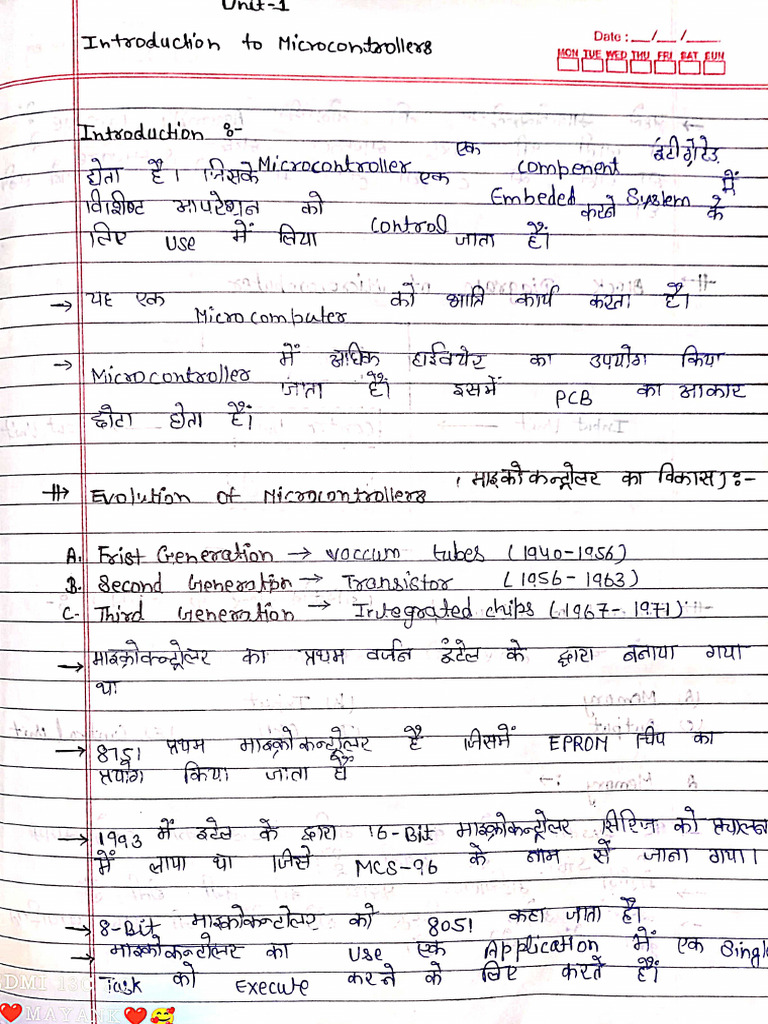 Unit-1
Introduction to Microcontrollers
Date : __/__/____
MON TUE WED THU FRI SAT SUN
Introduction :-
Microcontroller एक इंटीग्रेटेड compenent
होता है। जिसके एक Embeded System में
विशिष्ट आपरेशन को control करने के
लिए use में लिया जाता है।
→ यह एक Microcomputer की भांति कार्य करता है।
→ Microcontroller में अधिक हार्डवेयर का उपयोग किया
जाता है। इसमें PCB का आकार
छोटा होता है।
Evolution of Microcontrollers (माइक्रोकन्ट्रोलर का विकास) :-
A. Frist Generation → vaccum tubes (1940-1956)
B. Second Generation → Transistor (1956-1963)
C. Third Generation → Integrated chips (1967-1971)
→ माइक्रोकन्ट्रोलर का प्रथम वर्जन इंटेल के द्वारा बनाया गया
था
→ 8751 प्रथम माइक्रोकन्ट्रोलर है जिसमें EPROM चिप का
प्रयोग किया जाता है
→ 1993 में इंटेल के द्वारा 16-Bit माइक्रोकन्ट्रोलर सिरिज को प्रचालन
में लाया था जिसे MCS-96 के नाम से जाना गया।
→ 8-Bit माइकोकन्टोलर को 8051 कहा जाता है।
→ माइकोकन्टोलर का use एक Application में एक Single
Task को Execute करने के लिए करते हैं।
DMI
MAYANK